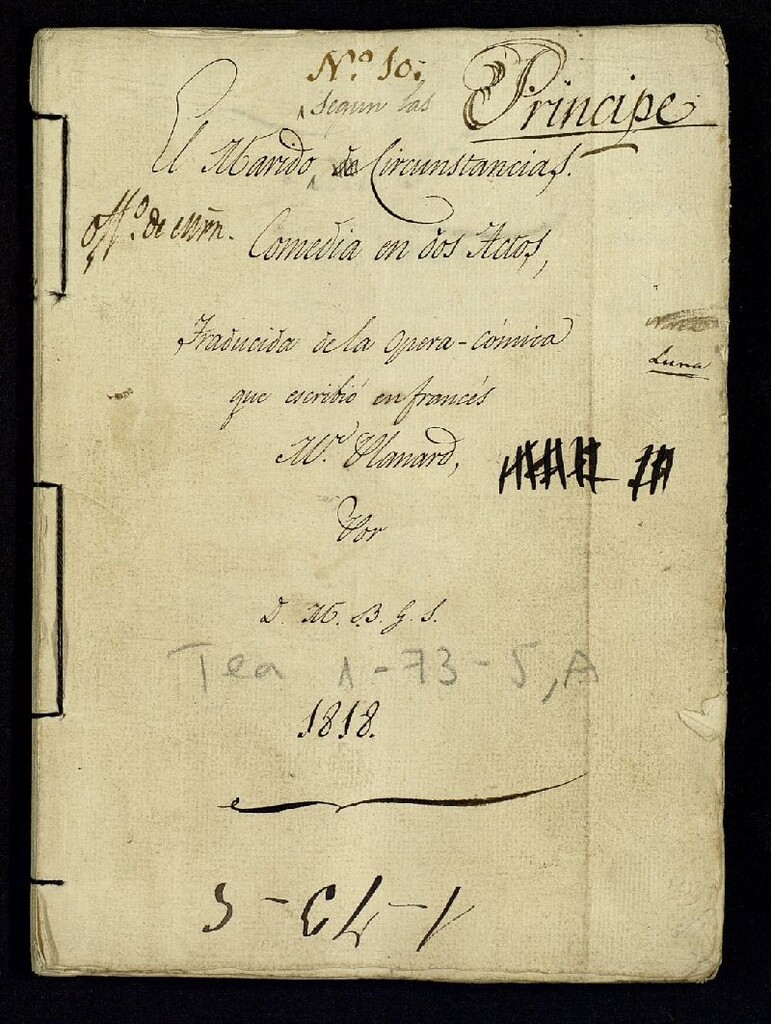 Nº 10.
Principe
segun las
El Marido, de Circunstancias.
Comedia en dos Actos,
Traducida de la opera-cómica
que escribió en francés
Mr. Planard,
Luna
Por
D. M. B. G. S.
Tea 1-73-5, A
1818.
1-73-5